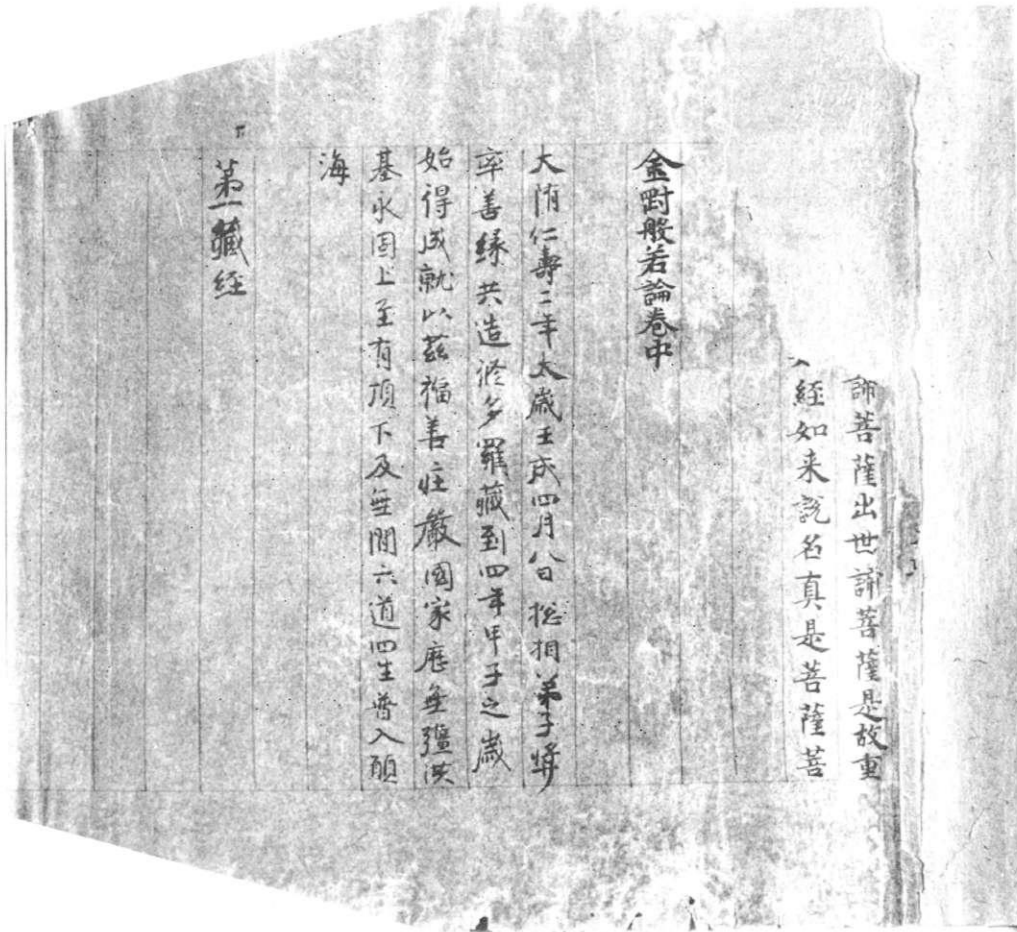 諦菩薩出世諦菩薩是故重
經如来說名真是菩薩菩
金罰般若論卷中
大隋仁壽二年太歲壬戌四月八日揔相弟子㢡
率善緣共造修多羅藏到四年甲子之歲
始得成就以茲福善莊嚴國家應無疆洪
基永固上至有頂下及無間六道四生普入願
海
第一藏経